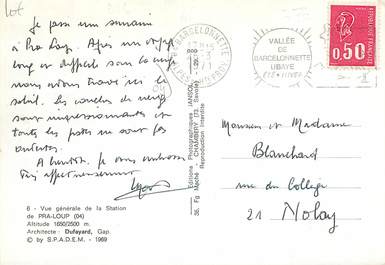 lot
Je passe une semaine
à Pra Loup. Après un voyage
long et difficile sous la neige
nous avons trouvé ici le
soleil. Les couches de neige
sont impressionnantes et
toutes les pistes ne sont pas
ouvertes.
A bientôt. Je vous embrasse
très affectueusement
6 - Vue générale de la Station
de PRA-LOUP (04)
Altitude 1650/2500 m.
Architecte: Dufayard, Gap.
© by S.P.A.D.E.M. - 1969
Editions Photographiques JANSOL
36, Fg Maché - CHAMBÉRY (73, Savoie)
Reproduction Interdite
BARCELONNETTE
VALLÉE
DE
BARCELONNETTE
UBAYE
ÉTÉ-HIVER
0,50
Monsieur et Madame
Blanchard
rue du Collège
21 Nolay